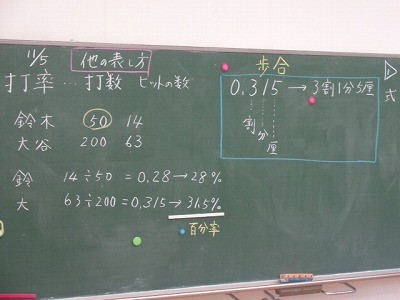 11/5
他の表し方
打率…打数 ヒットの数
鈴木 50 14
大谷 200 63
鈴 14÷50=0.28→28%
大 63÷200=0.315→31.5%
百分率
歩合
0.315→3割1分5厘
割
分
厘
1
式